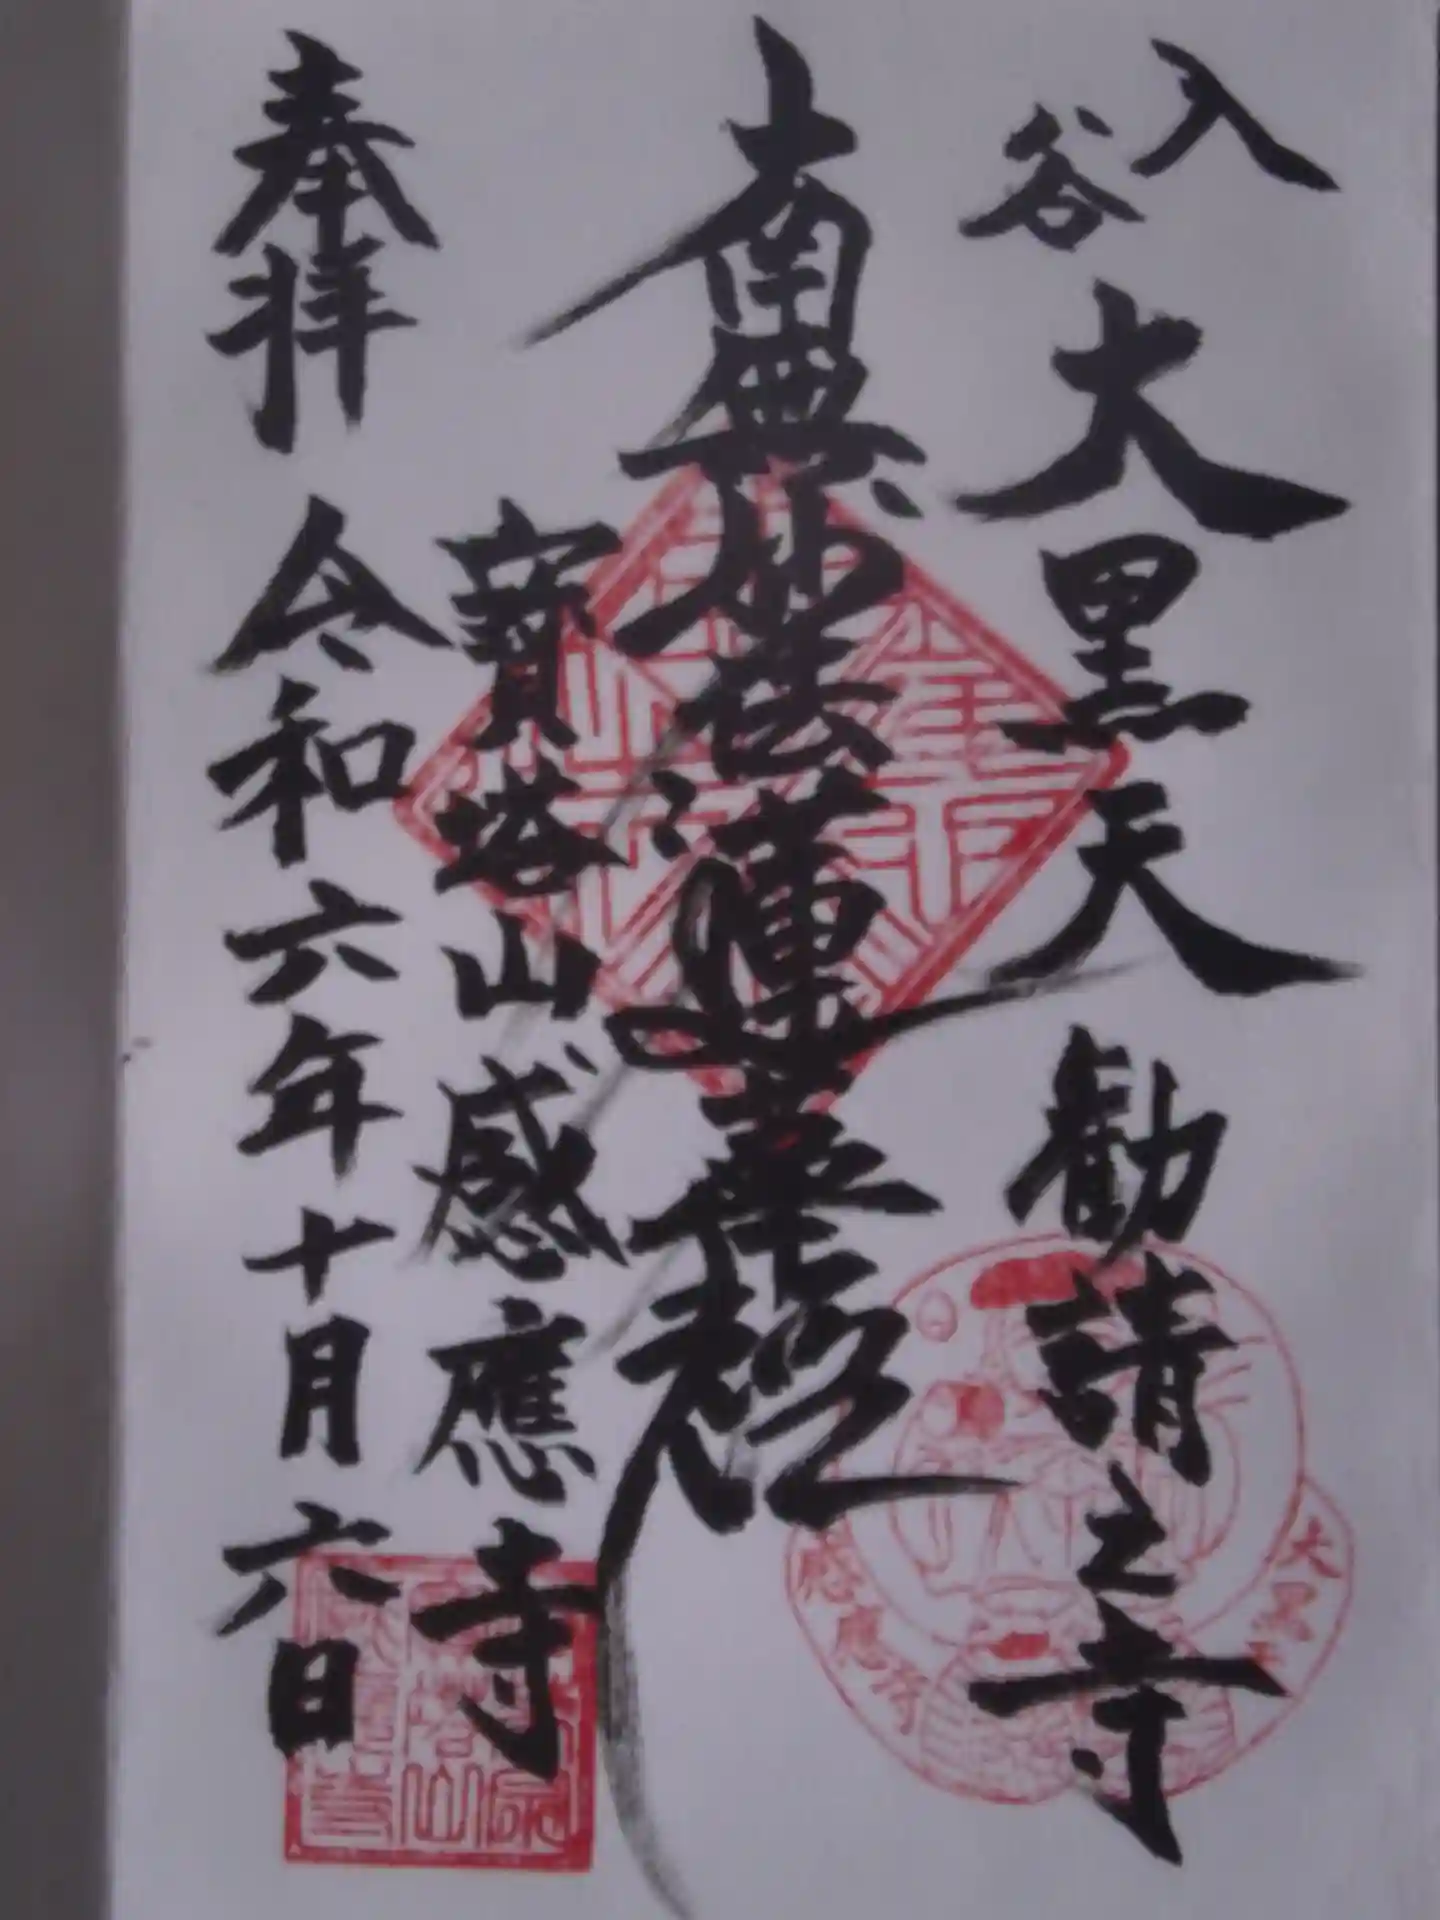 入谷
大黒天 勧請之寺
南無妙法蓮華経
寶塔山感應寺
奉拝 令和六年十月六日
大黒天
感應寺